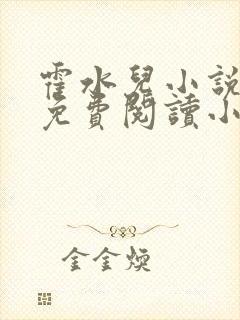 霍水兒小說
免費閱讀小
金金煥